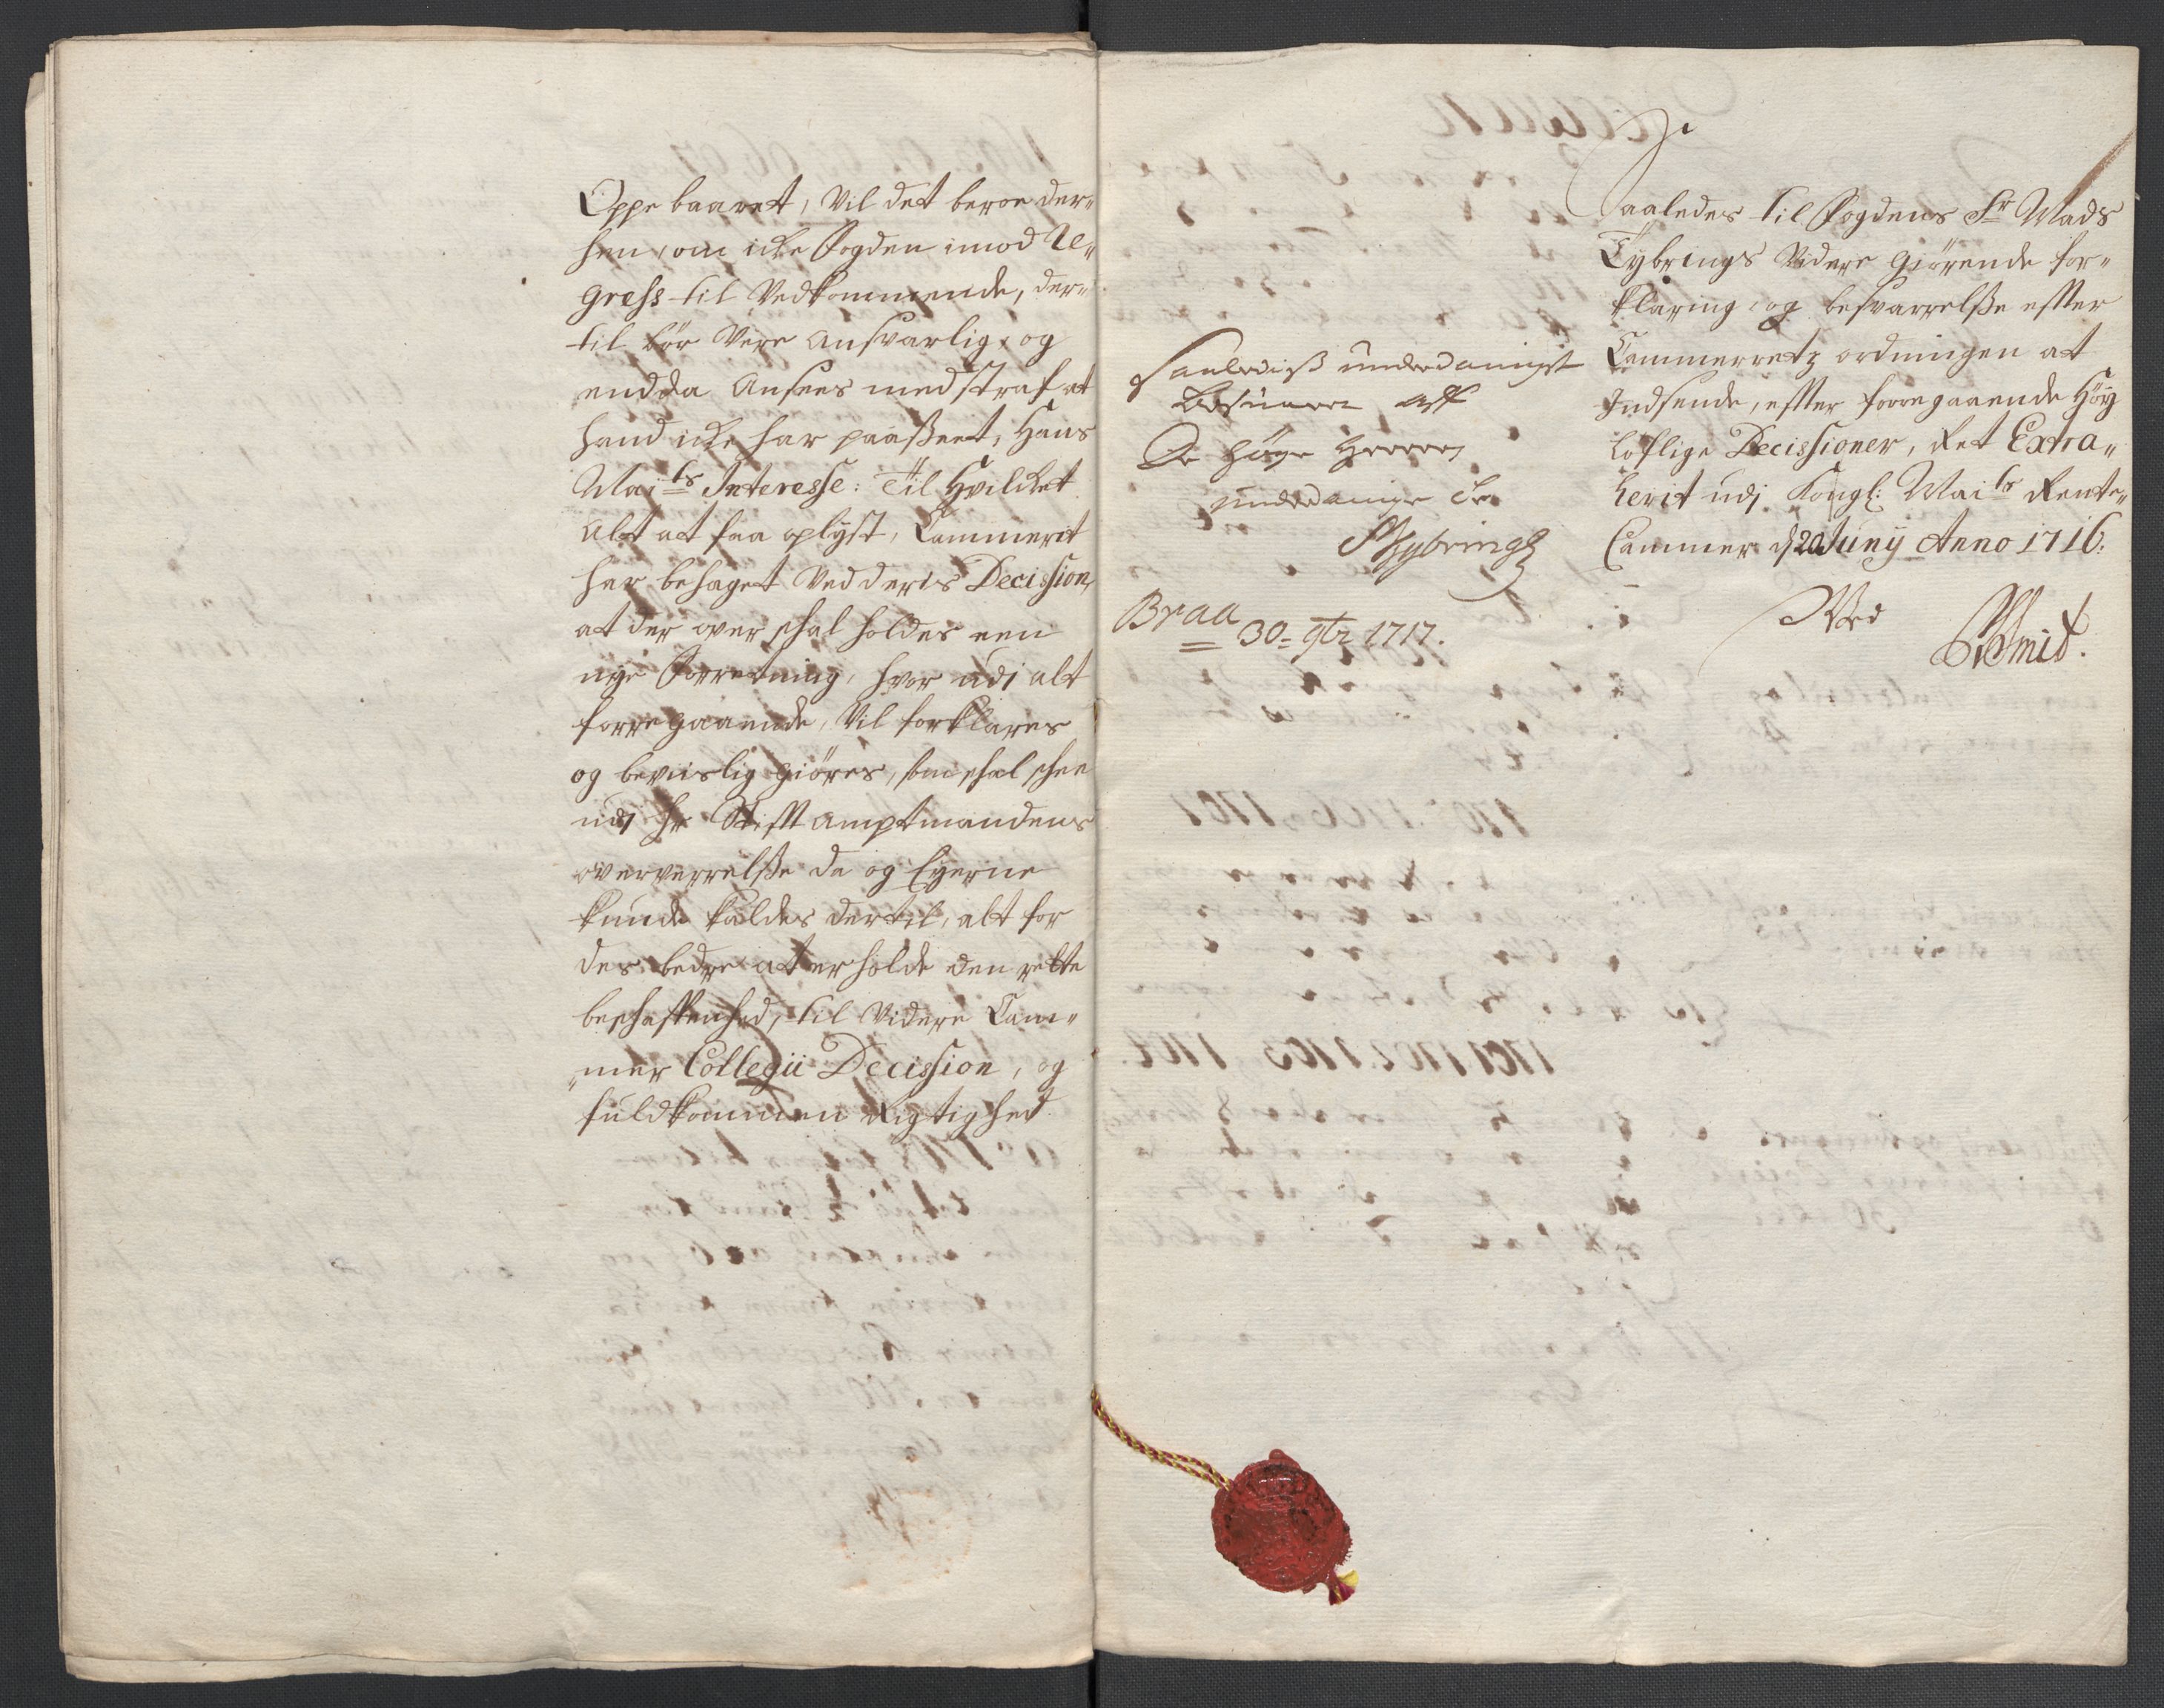 Oppebaaret, Vil det beroe der„
hen, om icke Fogden imod Re„
gress til Vedkommende, der„
til bør Vere Ansvarlig, og
endda Ansees med straf at
hand icke har paaßeet, Hans
Maits Interesse: Til Hvilcket
alt at faa oplyst, Cammeret
har behaget Ved deris Decission,
at der over schal holdes een
nye Forretning, hvor udj alt
forregaaende, Vil forklares
og beviislig giøres, som schal schee
udj Hr Stiftamptmandens
oververrelße da og Eyerne
kunde kaldes dertil, alt for
des bedre at erholde den rette
beschaffenhed, til Videre Cam„
„mer Collegii Decission, og
fuldkommen Rigtighed
Saaledis underdanigst
besuarer aff
De høye Herrers
underdanige tr
MTybring
Braa
30= 9br 1717.
Saaledes til Fogdens Sr Mads
Tybrings Videre giørende for„
klaring og besvarrelße efter
Cammerretz ordningen at
Indsende, efter forregaaende Høy
løflige Decissioner, Ret Extra„
herit udj Kongl: Maits Rente„
Cammer d 20 Juny Anno 1716.
Ved
Smid.